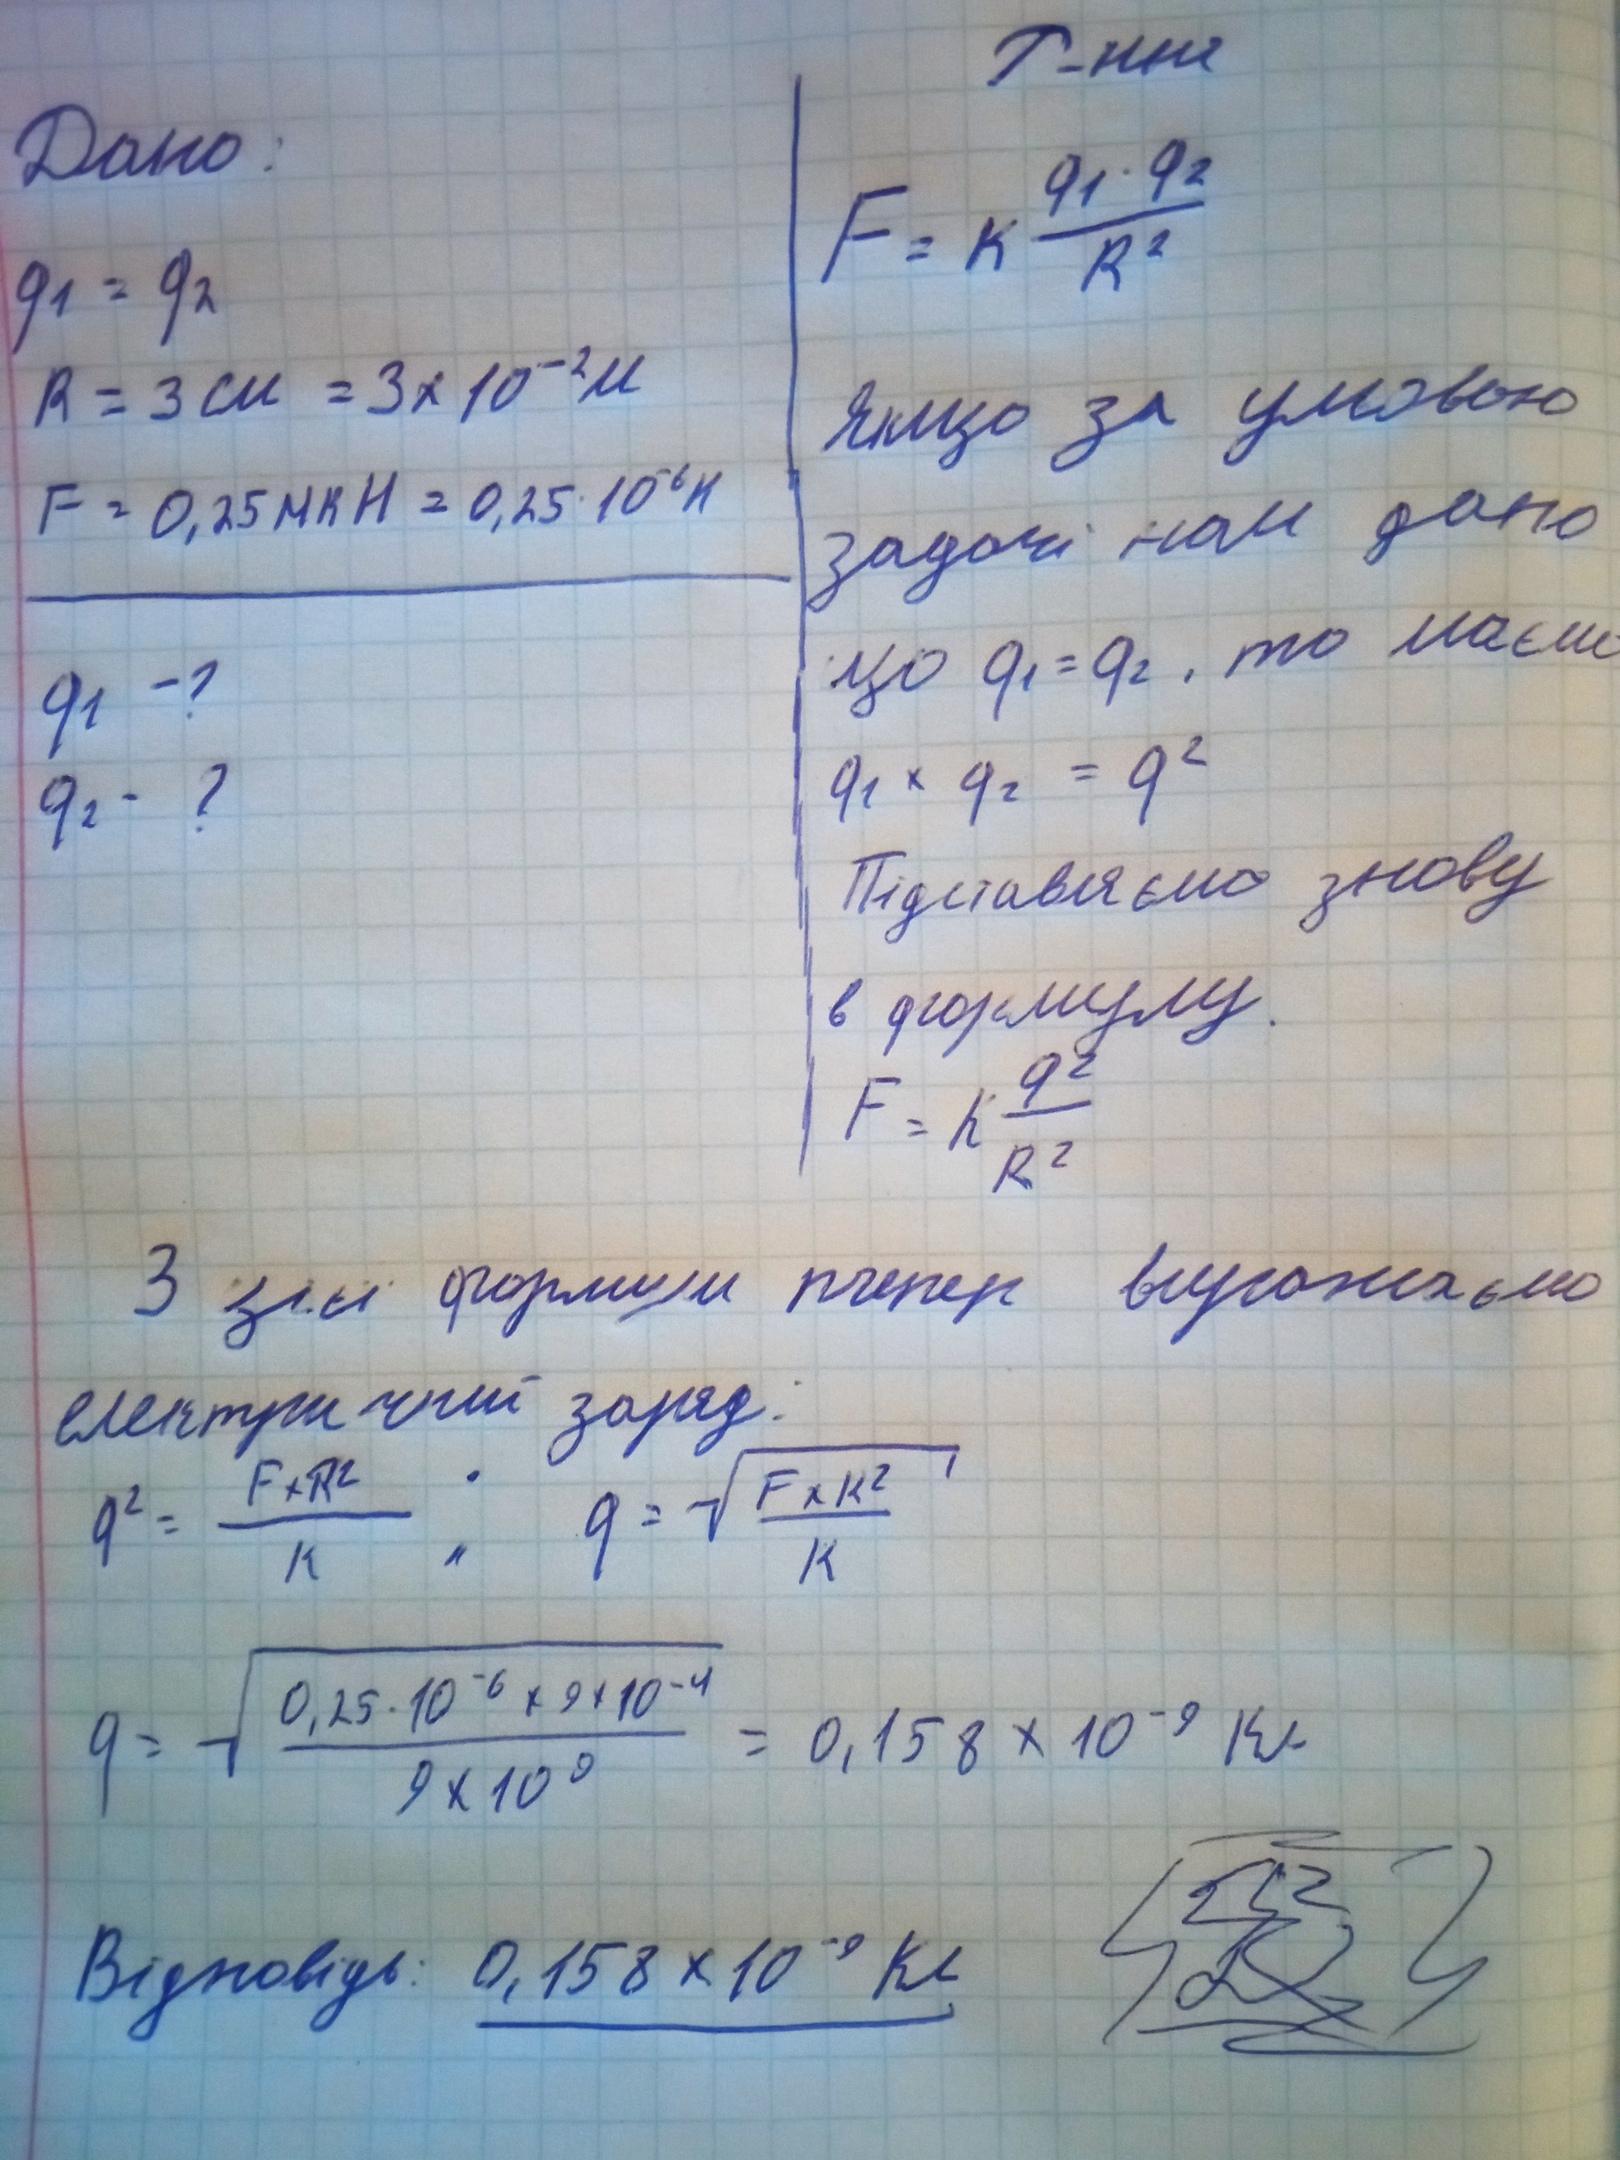 Дано:
q1 = q2
R = 3 см = 3 × 10⁻² м
F = 0,25 мкН = 0,25 · 10⁻⁶ Н
q1 - ?
q2 - ?
F = k q1 · q2 / R²
Якщо за умовою
задачі нам дано
що q1 = q2, то маємо
q1 × q2 = q²
Підставляємо знову
в формулу.
F = k q² / R²
З цієї формули тепер виражаємо
електричний заряд:
q² = F × R² / k ; q = √(F × R² / k)
q = √(0,25 · 10⁻⁶ × 9 × 10⁻⁴ / 9 × 10⁹) = 0,158 × 10⁻⁹ Кл
Відповідь: 0,158 × 10⁻⁹ Кл